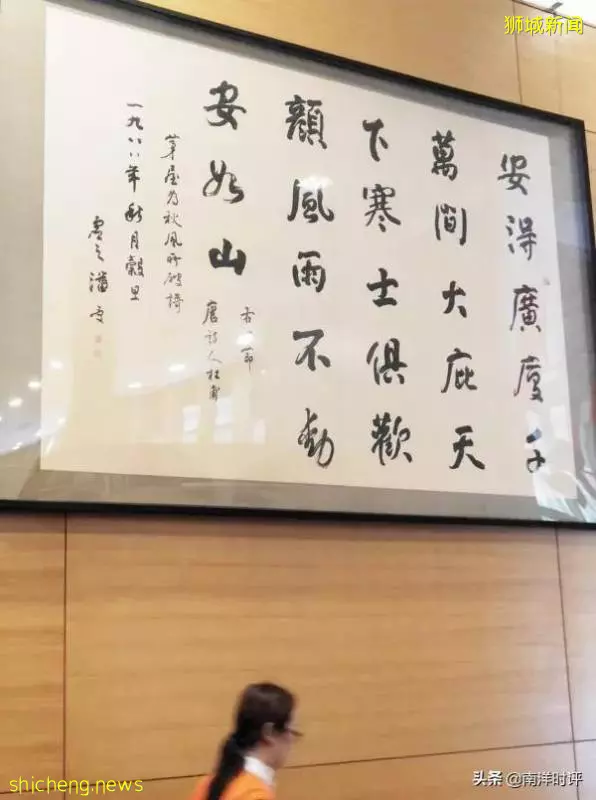 狮城新闻
安得廣廈千
萬間大庇天
下寒士俱歡
顏風雨不動
安如山
節
唐詩人杜甫
茅屋为秋風所破詩
一九八八年秋月穀旦
虛之潘受
shicheng.news
头条 @南洋时评